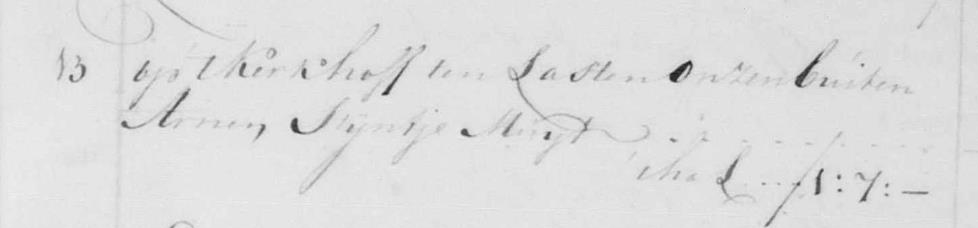 13 op 't Kerkhoff ten Lasten onzen buiten
Armen, Styntje Muyt
f 1:7:—